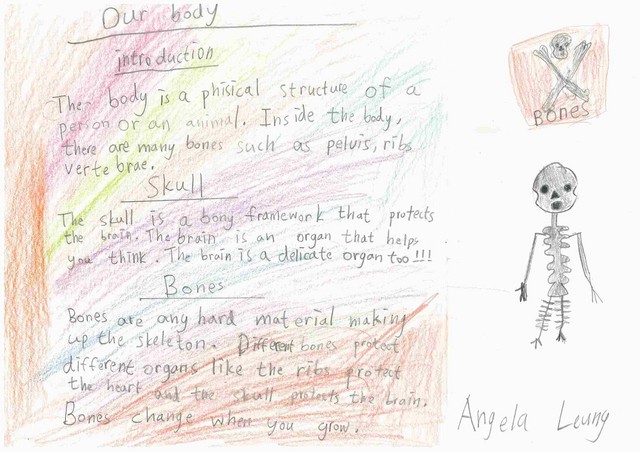 Our body
introduction
The body is a phisical structure of a
person or an animal. Inside the body,
there are many bones such as pelvis, ribs
vertebrae.
Skull
The skull is a bony framework that protects
the brain. The brain is an organ that helps
you think. The brain is a delicate organ too!!!
Bones
Bones are any hard material making
up the skeleton. Different bones protect
different organs like the ribs protect
the heart and the skull protects the brain.
Bones change when you grow.
BONES
Angela Leung